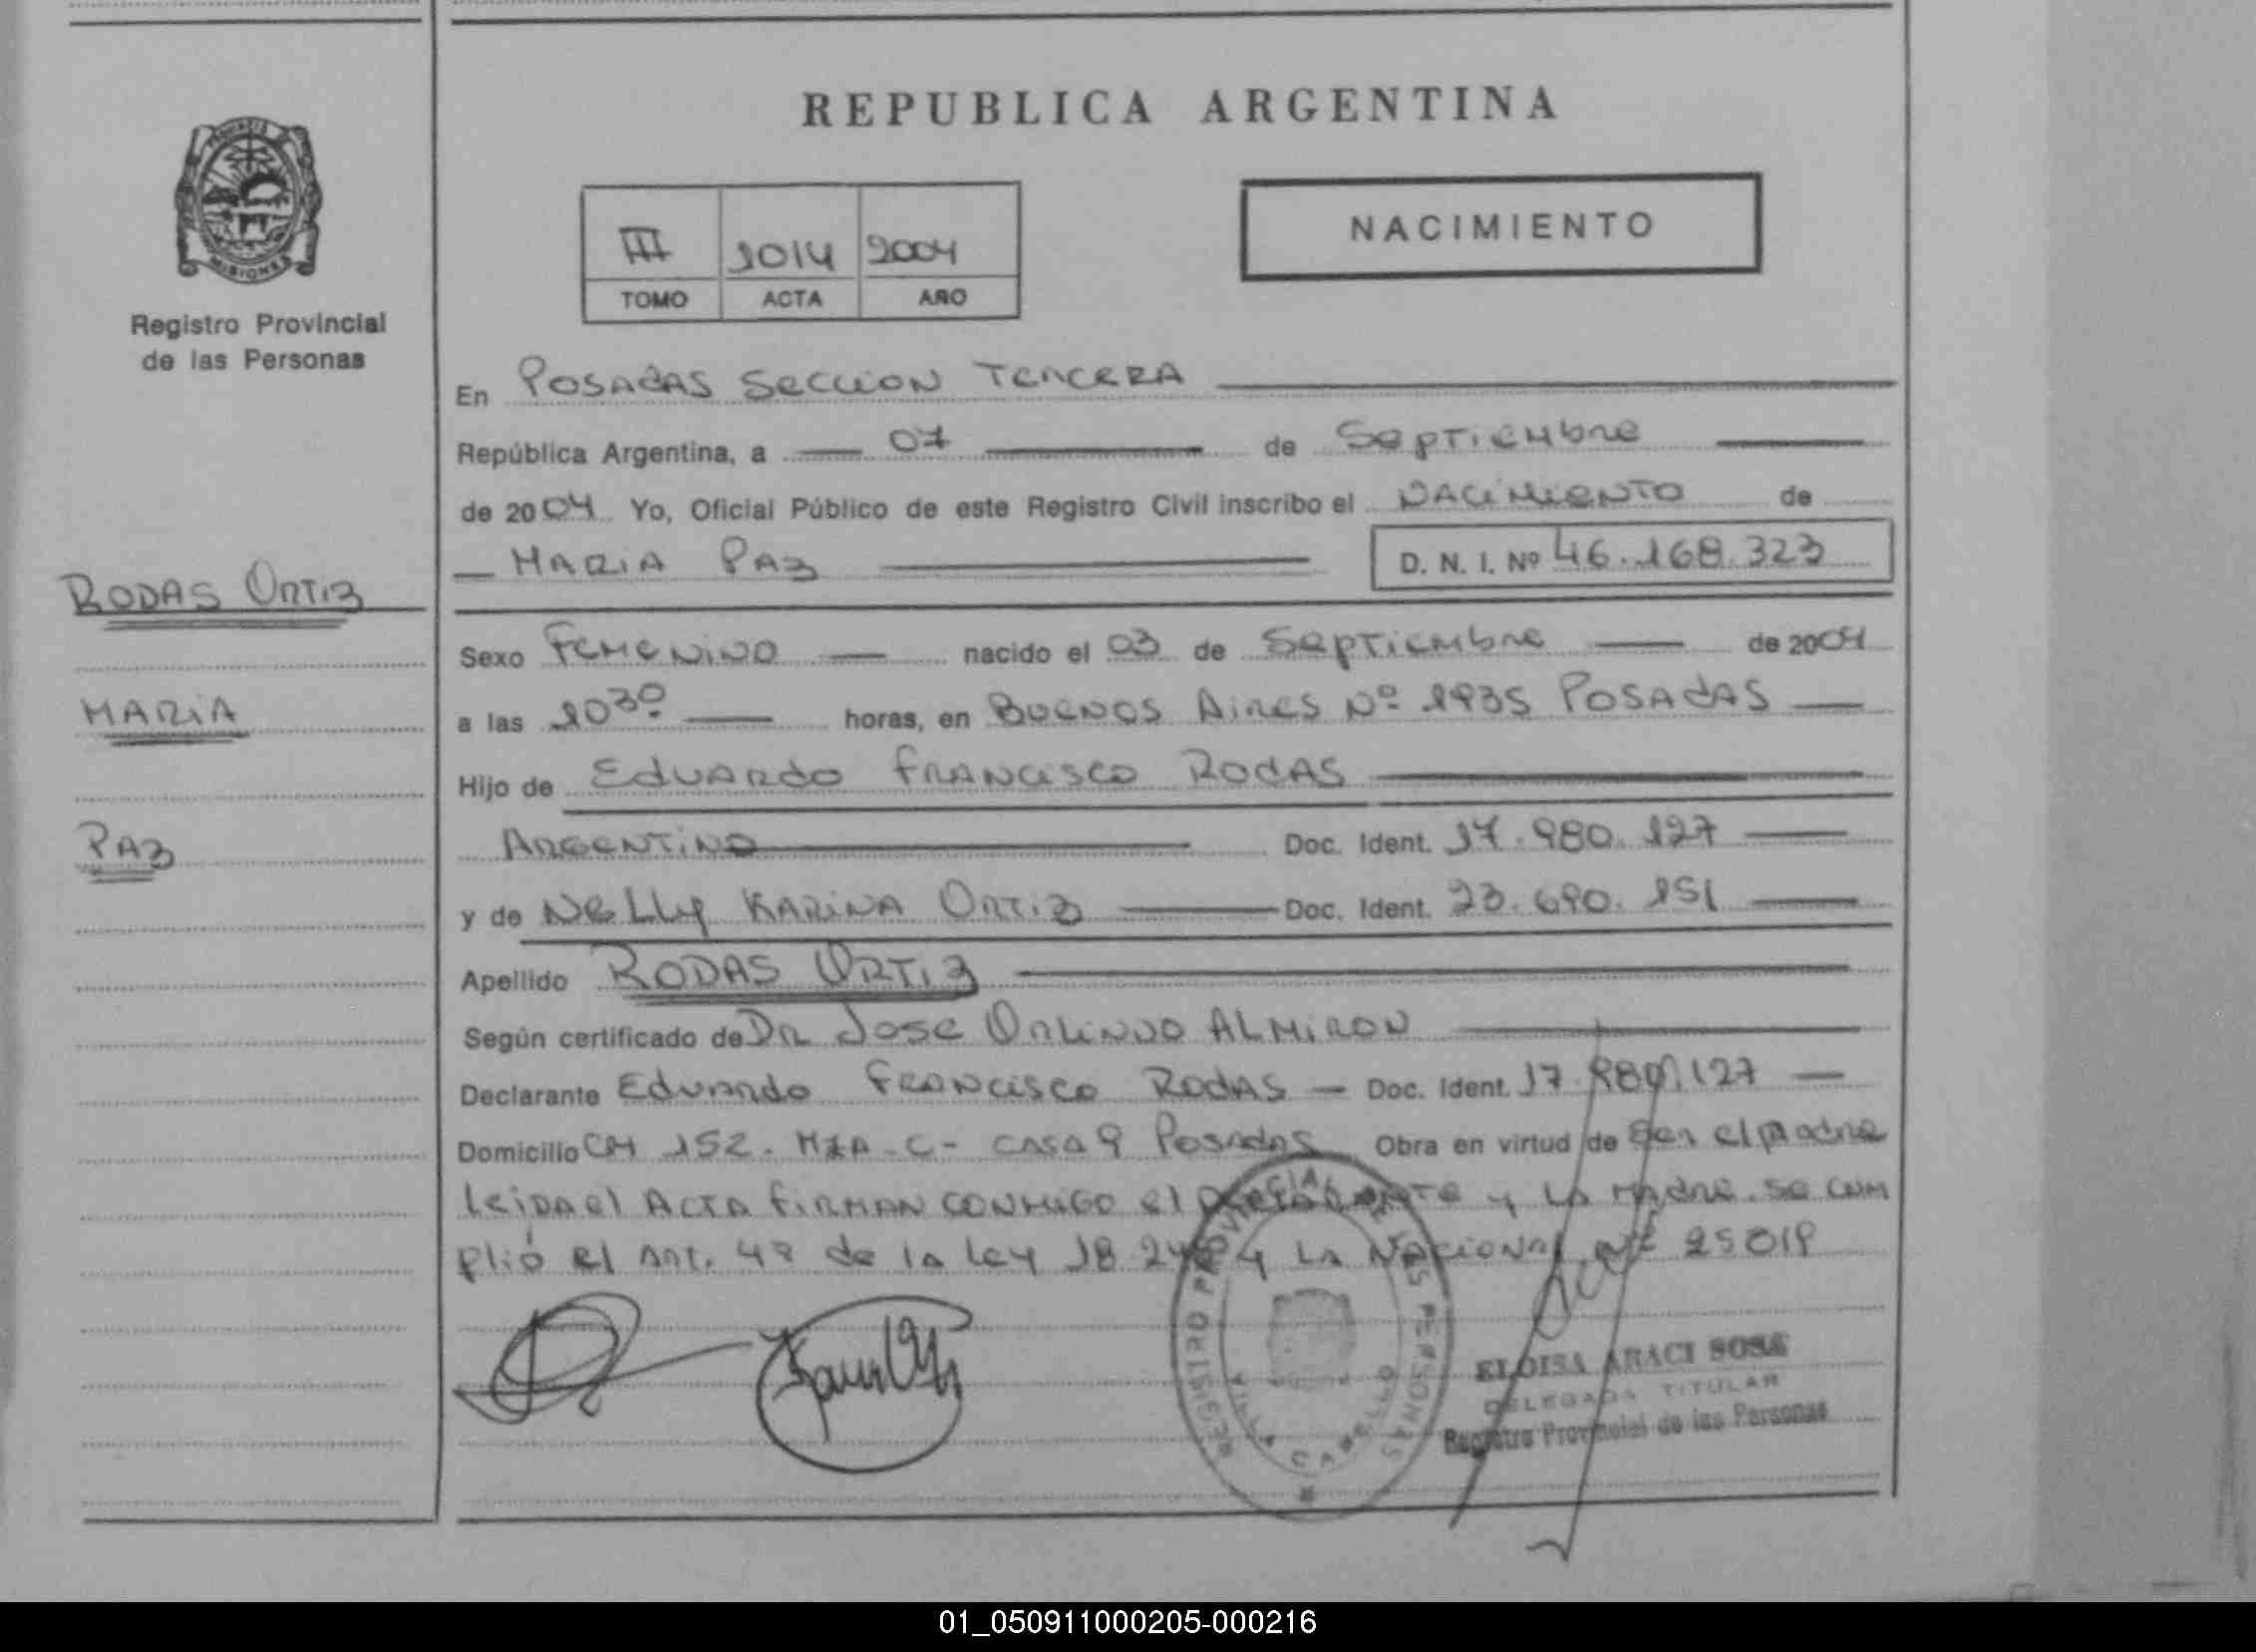 REPUBLICA ARGENTINA
MISIONES
Registro Provincial
de las Personas
III 1014 2004
TOMO ACTA AÑO
NACIMIENTO
En POSADAS SECCION TERCERA
República Argentina, a 07 de Septiembre
de 2004 Yo, Oficial Público de este Registro Civil inscribo el NACIMIENTO de
MARIA PAZ D. N. I. Nº 46.168.323
RODAS ORTIZ
MARIA
PAZ
Sexo FEMENINO nacido el 03 de Septiembre de 2004
a las 1030 horas, en BUENOS AIRES Nº 1935 POSADAS
Hijo de EDUARDO FRANCISCO RODAS
ARGENTINO Doc. Ident. 17.980.127
y de NELLY KARINA ORTIZ Doc. Ident. 23.690.151
Apellido RODAS ORTIZ
Según certificado de DR JOSE ORLINDO ALMIRON
Declarante EDUARDO FRANCISCO RODAS Doc. Ident. 17.980.127
Domicilio CH 152. MZA-C- CASA 9 POSADAS Obra en virtud de ser el padre
Leida el ACTA FIRMAN CONMIGO el DECLARANTE y LA MADRE. Se cum
plió el ART. 4º de la Ley 18248 y LA NACIONAL Nº 25819
REGISTRO PROVINCIAL DE LAS PERSONAS
VILLA CABELLO
ELOISA ARACI SOSA
DELEGADA TITULAR
Registro Provincial de las Personas
01_050911000205-000216